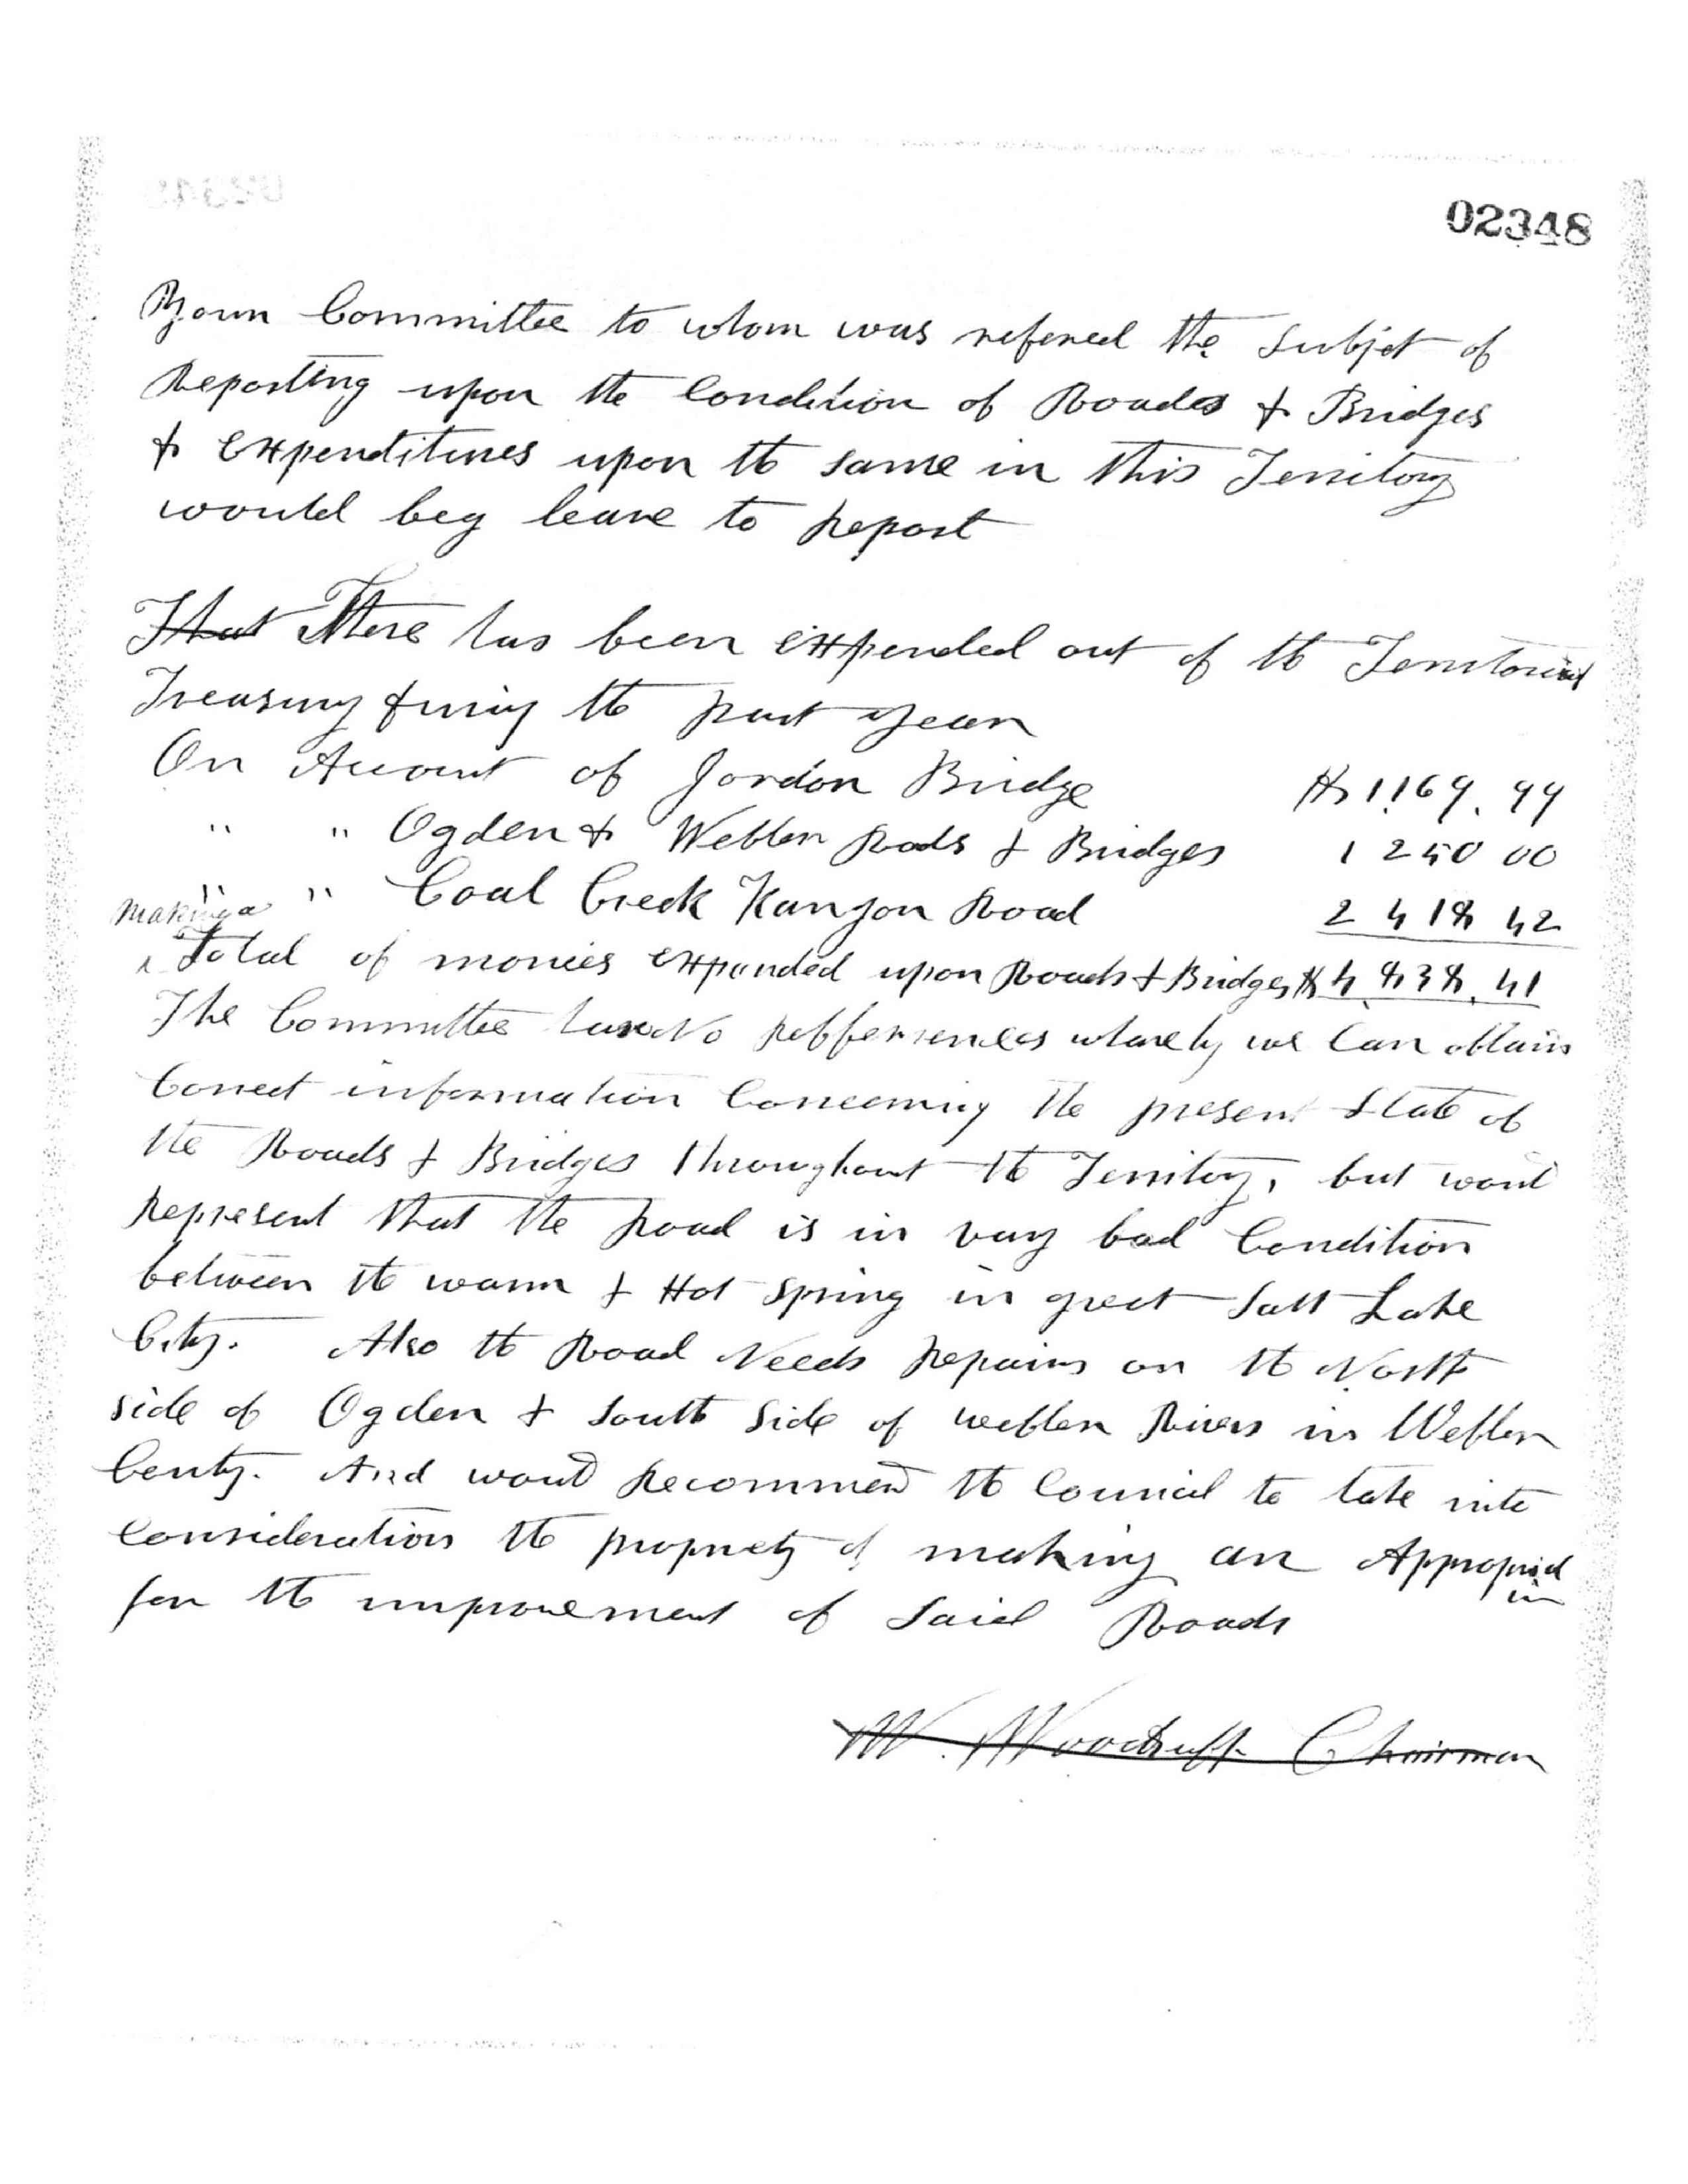 02348
Your Committee to whom was refered the subjet of
Reporting upon the Condition of Roades & Bridges
& Expenditures upon the same in this Territory
would beg leave to Report
That There has been Expended out of the Territorial
Treasury during the past year
On Account of Jordon Bridge $1,169.99
" " Ogden & Webber Roads & Bridges 1 250 00
" " Coal Creek Kanyon Road 2 418 42
making a
Total of monies Expended upon Roads & Bridges $4,838.41
The Committee have No Refferences wharely we Can obtain
Correct information Concerning the present State of
the Roads & Bridges throughout the Territory, but would
Represent that the Road is in vary bad Condition
between the warm & Hot Spring in great Salt Lake
City. Also the Road Needs Repairs on the North
side of Ogden & South Side of webber Rivers in Webber
County. And would Recommend the Council to take into
Consideration the propriety of making an Appropriat
ion
for the improvement of Said Roads
W. Woodruff Chairman